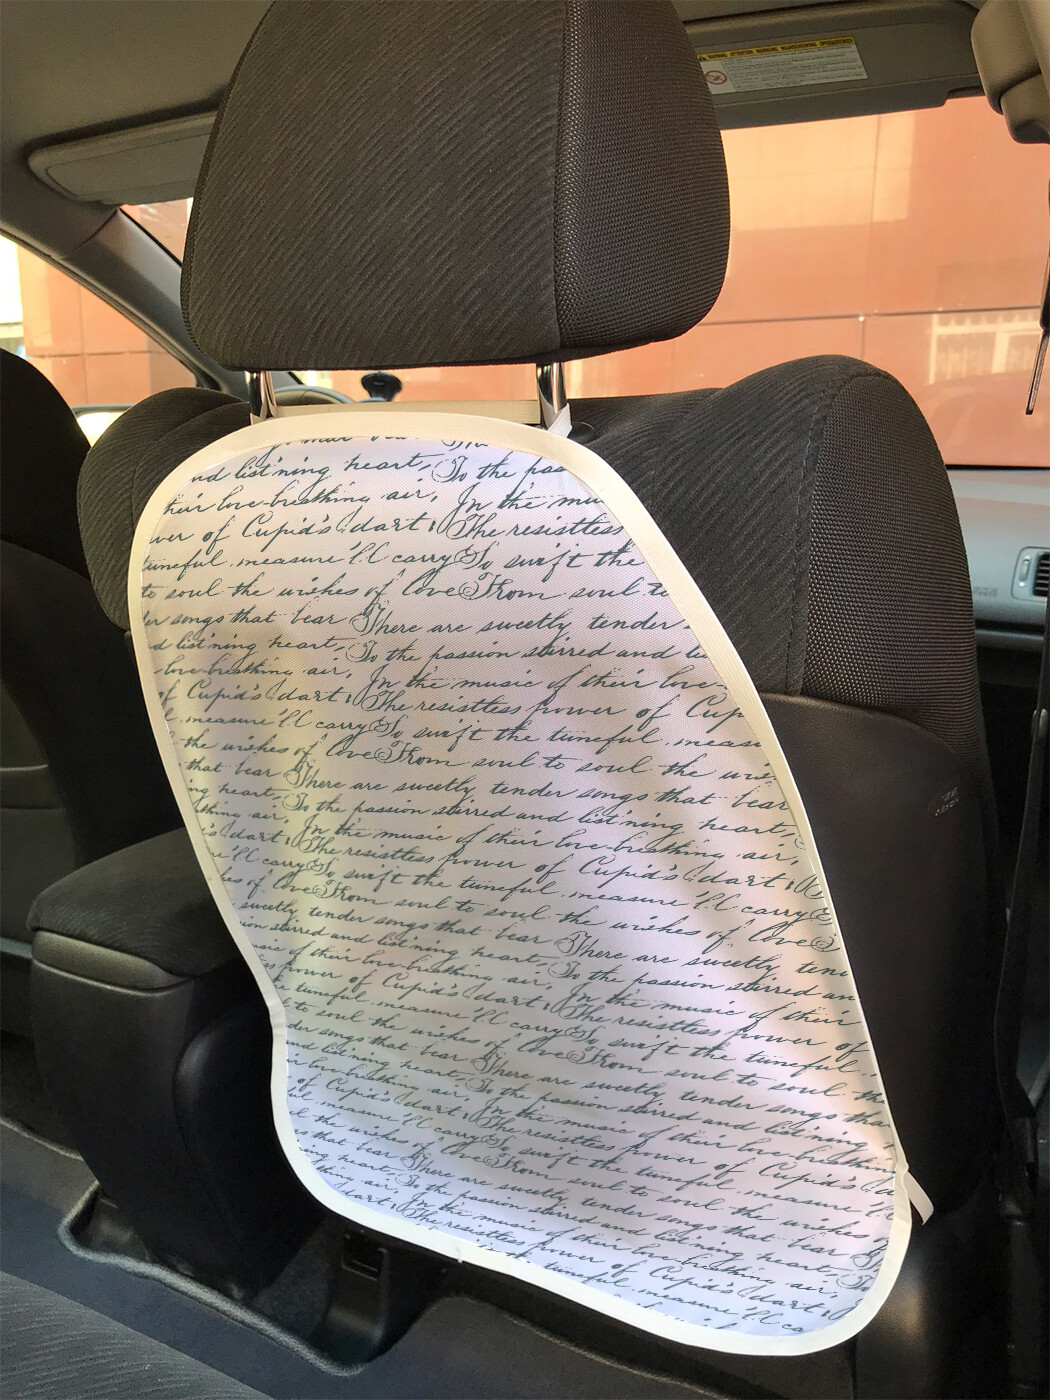 nd list'ning heart, To the pas
heir love-breathing air, In the mu
wer of Cupid's dart; The resistless
tuneful measure I'll carry So swift the
to soul the wishes of love From soul to
er songs that bear There are sweetly tender
d list'ning heart, To the passion stirred and li
love-breathing air, In the music of their love-
of Cupid's dart; The resistless power of Cup
l measure I'll carry So swift the tuneful measu
the wishes of love From soul to soul the wis
that bear There are sweetly tender songs that bear
ng heart, To the passion stirred and list'ning heart,
thing air, In the music of their love-breathing air,
's dart; The resistless power of Cupid's dart;
e I'll carry So swift the tuneful measure I'll carry
hes of love From soul to soul the wishes of love
sweetly tender songs that bear There are sweetly tend
ion stirred and list'ning heart, To the passion stirred an
usic of their love-breathing air, In the music of their
ss power of Cupid's dart; The resistless power of
he tuneful measure I'll carry So swift the tuneful
l to soul the wishes of love From soul to soul the
der songs that bear There are sweetly tender songs tha
and list'ning heart, To the passion stirred and list'ning
ir love-breathing air, In the music of their love-breathing
of Cupid's dart; The resistless power of Cupid's da
ful measure I'll carry So swift the tuneful measure I'l
ul the wishes of love From soul to soul the wishes of
gs that bear There are sweetly tender songs that bear
ning heart, To the passion stirred and list'ning heart, To
thing air, In the music of their love-breathing air,
dart; The resistless power of Cupid's dart;
the tuneful measure I'll ca